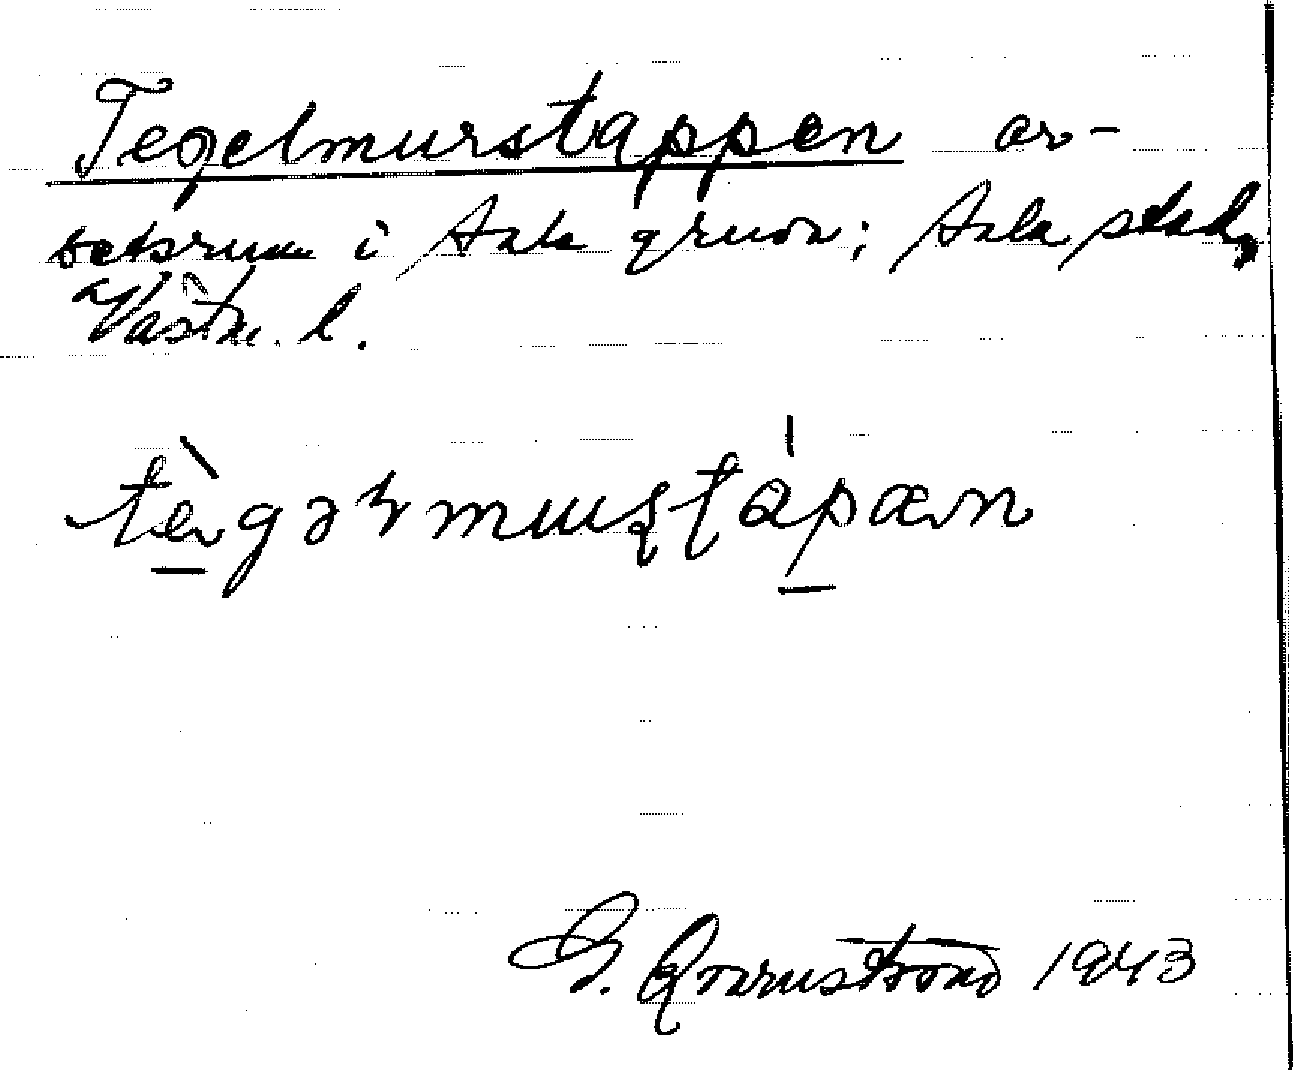 Tegelmurstappen ar-
betsrum i Sala gruva; Sala stad,
Västm. l.
tègəlmuʂʈápæn
G. Qvarnström 1943